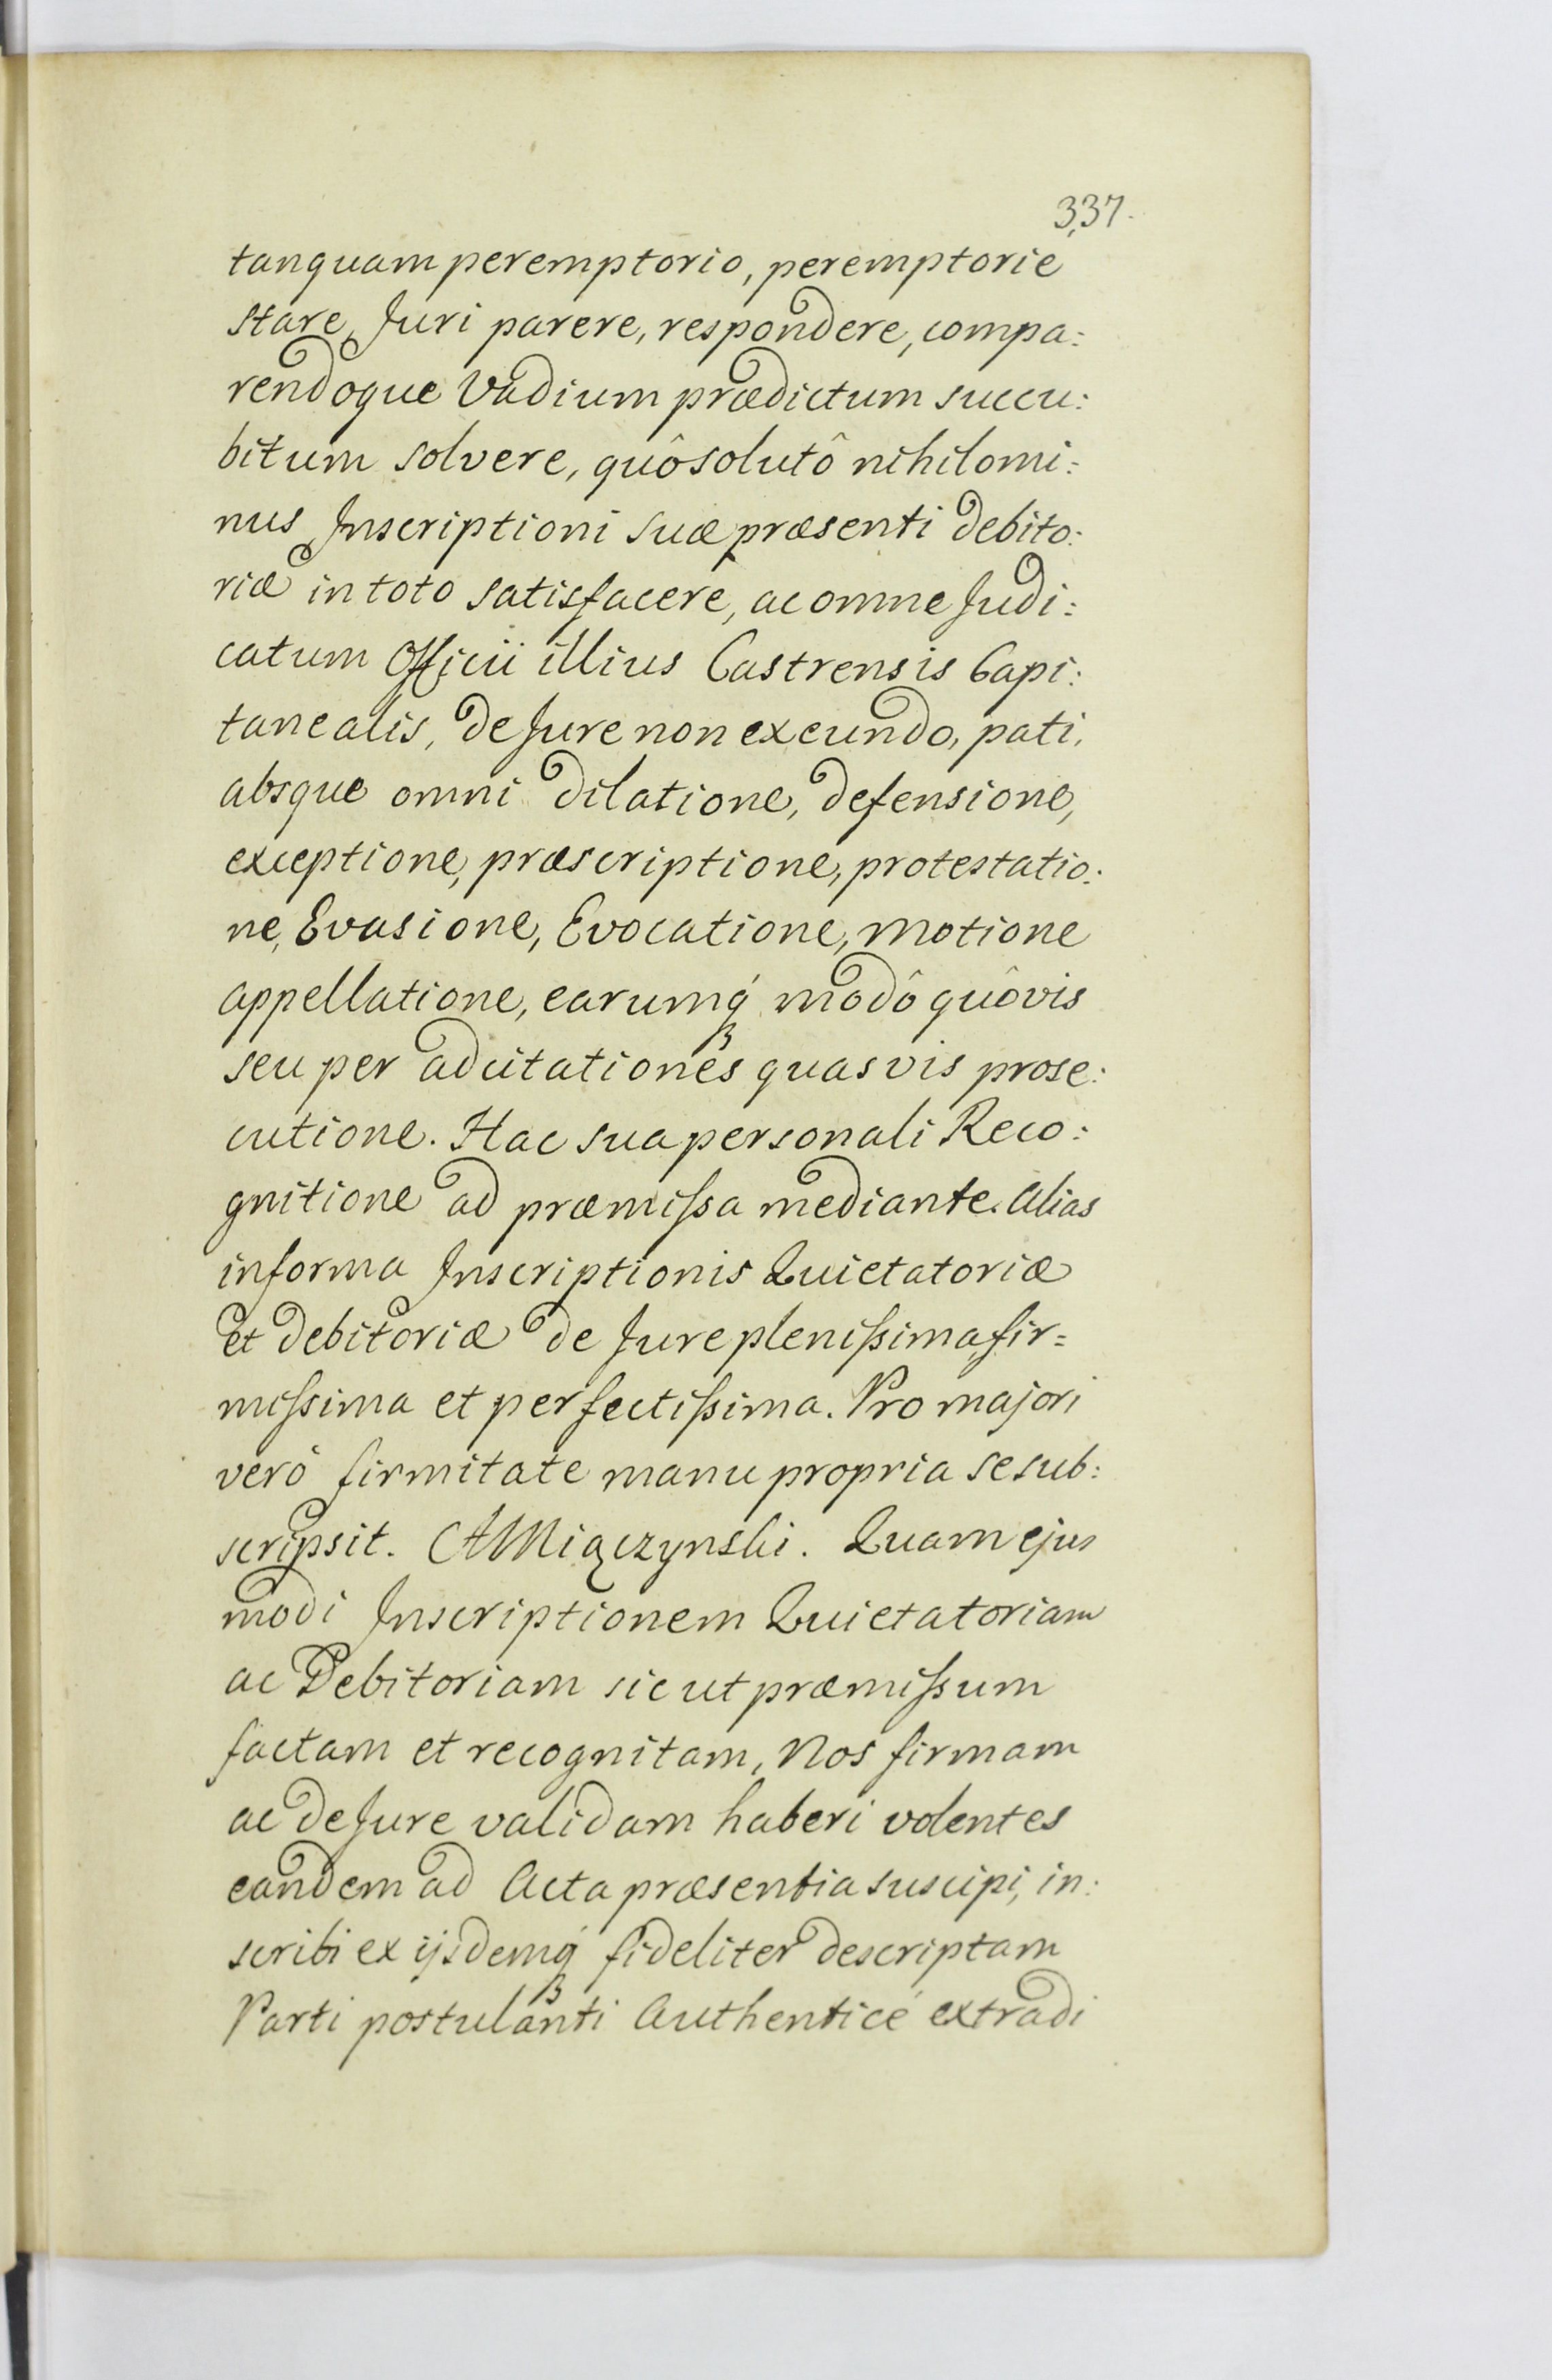 337.
tanquam peremptorio, peremptorie
stare, Juri parere, respondere, compa:
rendoque Vadium prædictum succu:
bitum solvere, quô solutô nihilomi:
nus Inscriptioni suæ præsenti debito:
riæ in toto satisfacere, ac omne Judi:
catum Officii illius Castrensis Capi:
tanealis, de Jure non exeundo, pati,
absque omni dilatione, defensione,
exceptione, præscriptione, protestatio:
ne, Evasione, Evocatione, motione
appellatione, earumq́ modô quôvis
seu per adcitationes quasvis prose:
cutione. Hac sua personali Reco:
gnitione ad præmiſsa mediante. Alias
in forma Inscriptionis Quietatoriæ
et debitoriæ de Jure pleniſsima, fir=
miſsima et perfectiſsima. Pro majori
verò firmitate manu propria se sub:
scripsit. AMiączynski. Quam ejus
modi Inscriptionem Quietatoriam
ac Debitoriam sic ut præmiſsum
factam et recognitam, Nos firmam
ac de Jure validam haberi volentes
eandem ad Acta præsentia suscipi, in:
scribi ex ijsdemq́ fideliter descriptam
Parti postulanti Authenticé extradi